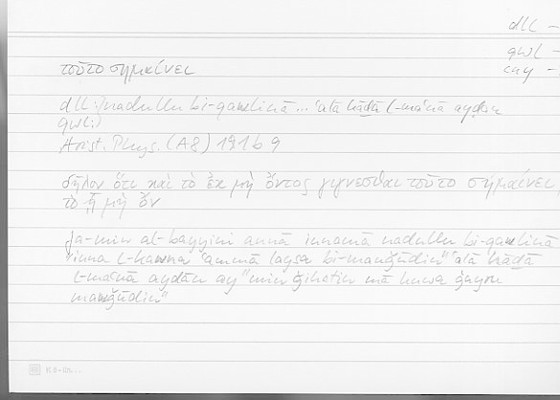 dll –
qwl –
cay –
τοῦτο σημαίνει
dll : nadullu bi-qawlinā ... ʿalā hāḏā l-maʿnā ayḍan
qwl :
Arist. Phys. (A8) 191b9
δῆλον ὅτι καὶ τὸ ἐκ μὴ ὄντος γίγνεσθαι τοῦτο σημαίνει,
τὸ ᾗ μὴ ὄν
fa-min al-bayyini annā innamā nadullu bi-qawlinā
inna l-kawna "ʿammā laysa bi-mawǧūdin" ʿalā hāḏā
l-maʿnā ayḍan ay "min ǧihatin mā huwa ġayru
mawǧūdin"